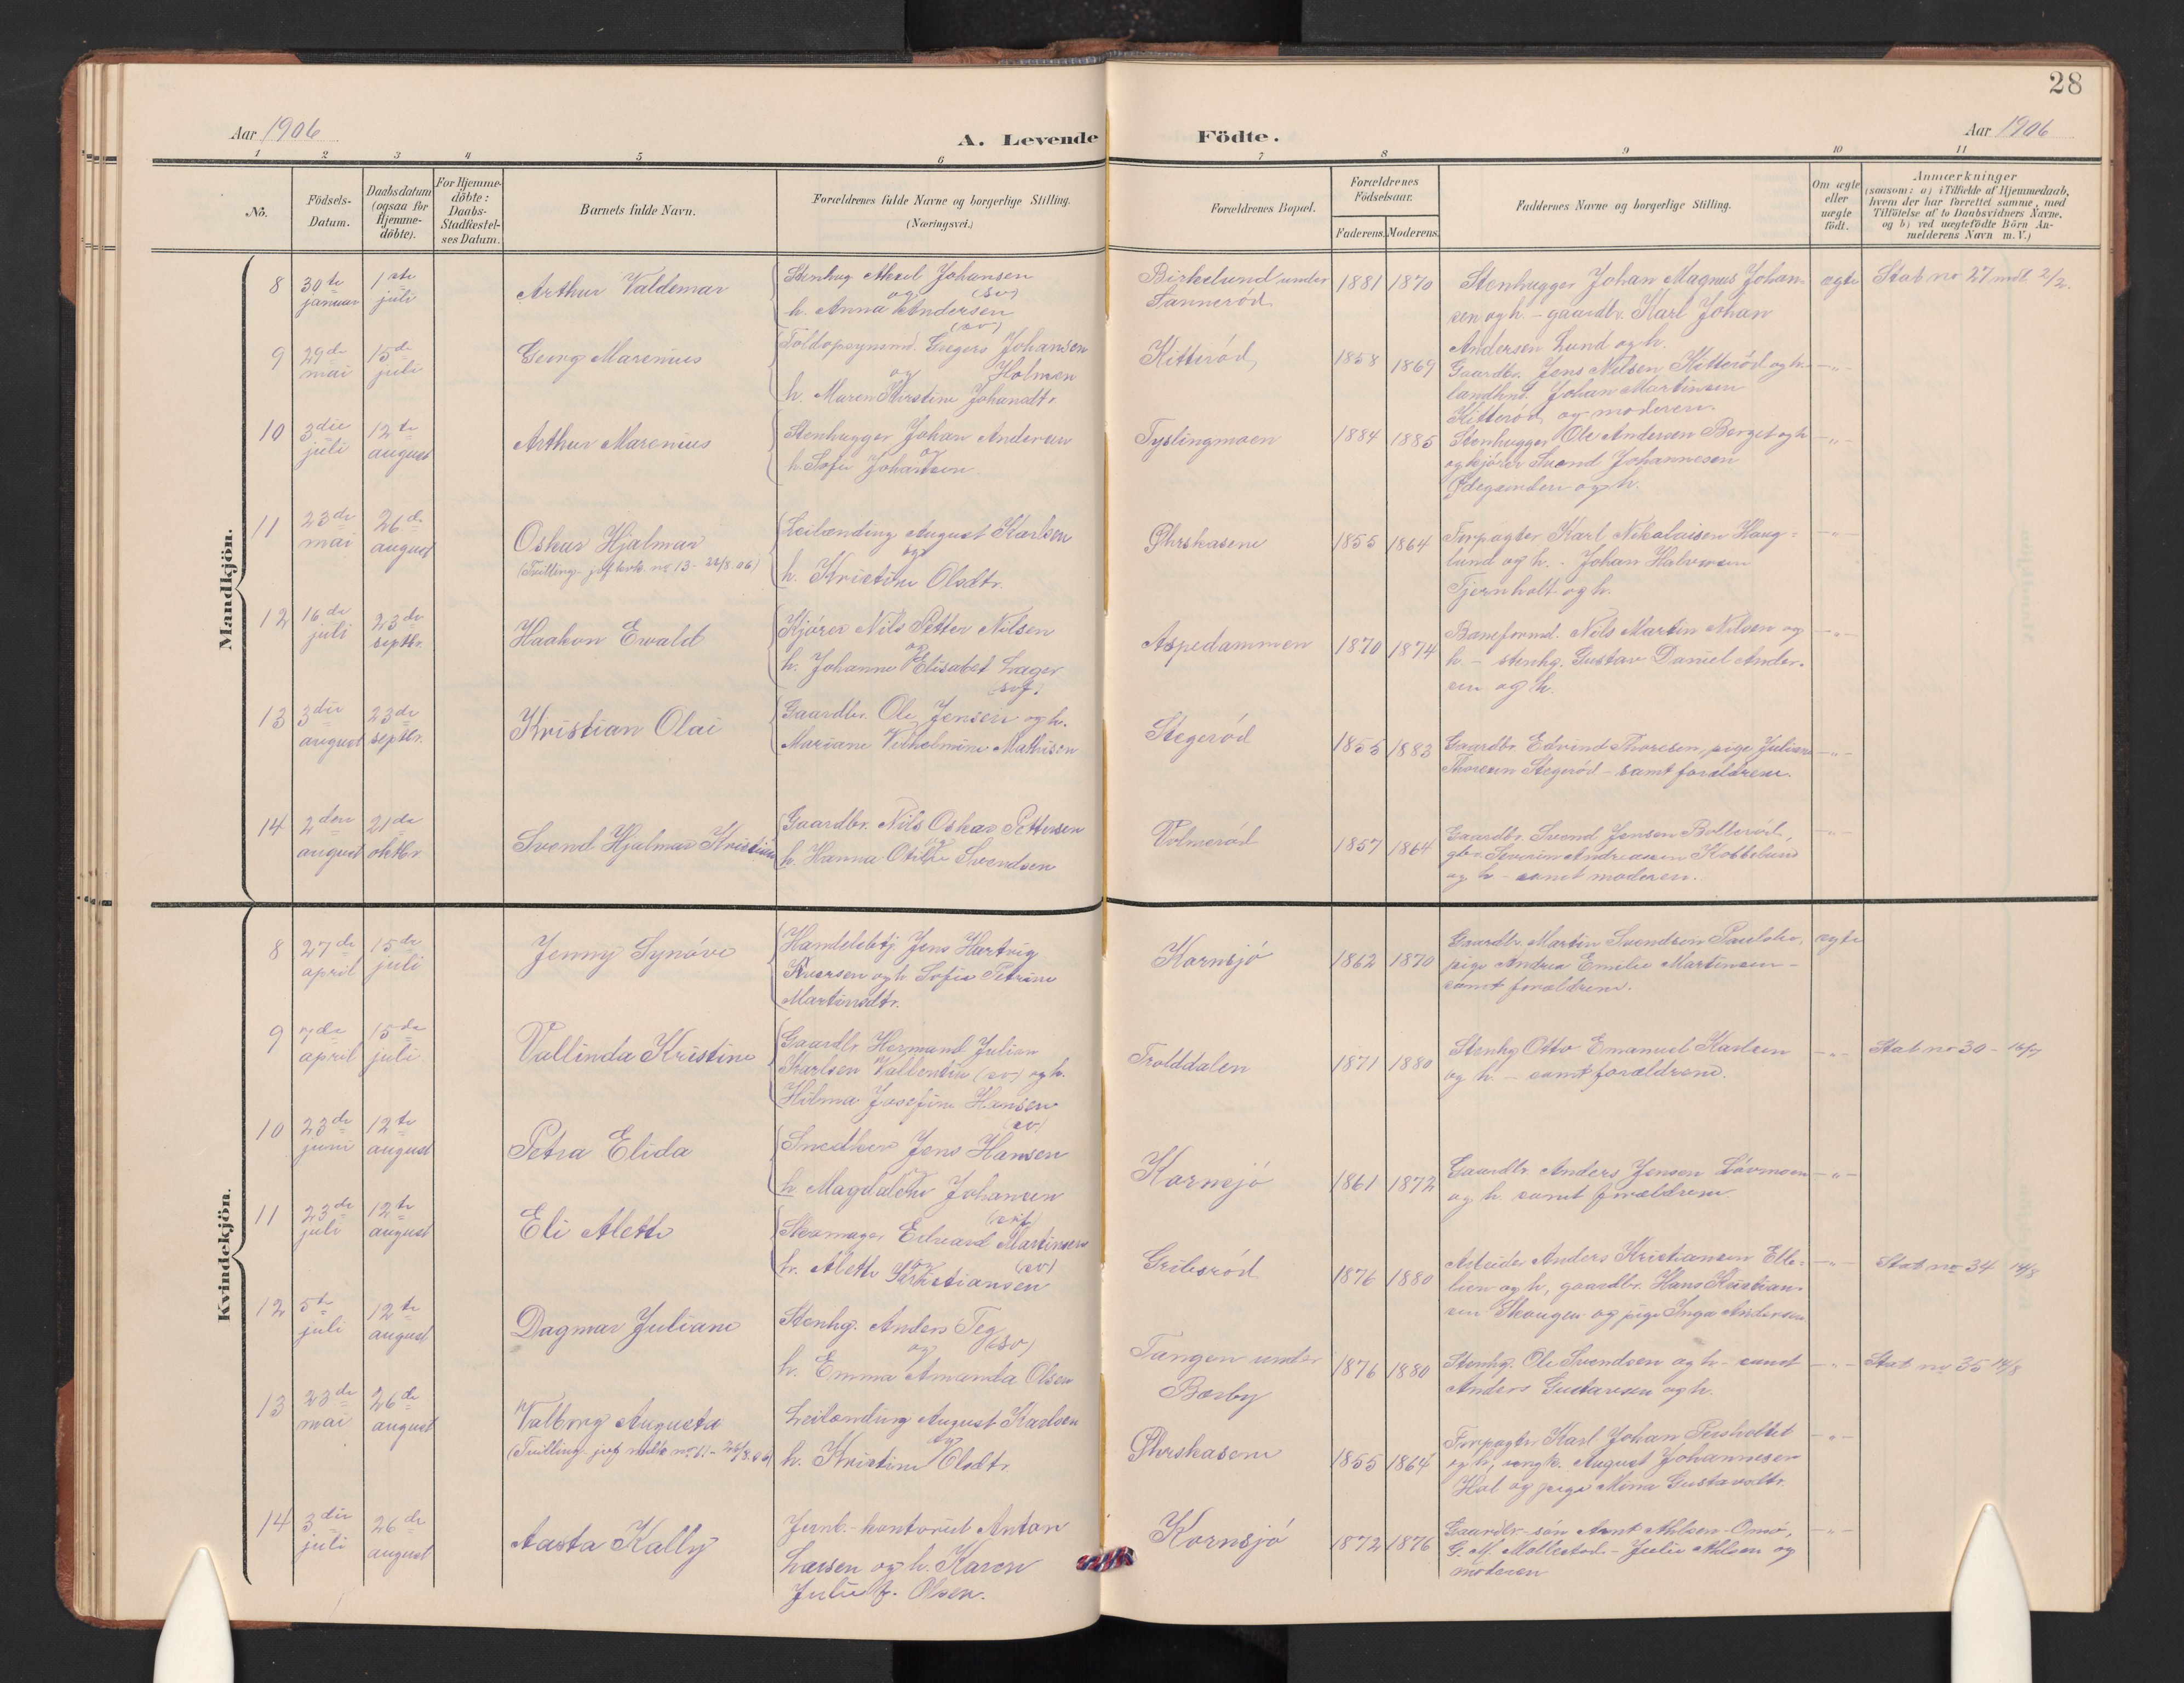 28
Aar 1906
A. Levende Födte.
Aar 1906
1 2 3 4 5 6 7 8 9 10 11
No.
Födsels-
Datum.
Daabsdatum
(ogsaa for
Hjemme-
döbte).
For Hjemme-
döbte:
Daabs-
Stadfæstel-
ses Datum.
Barnets fulde Navn.
Forældrenes fulde Navne og borgerlige Stilling.
(Næringsvei.)
Forældrenes Bopæl.
Forældrenes
Födselsaar.
Faderens. Moderens.
Faddernes Navne og borgerlige Stilling.
Om ægte
eller
uægte
födt.
Anmærkninger
(saasom: a) i Tilfælde af Hjemmedaab,
hvem der har forrettet samme, med
Tilföielse af to Daabsvidners Navne.
og b) ved uægtefödte Börn An-
melderens Navn m. V.)
Mandkjön.
8
30te
januar
1ste
juli
Arthur Valdemar
Stenhug Axel Johansen
og (sv)
h. Anna Andersen
(sv)
Birkelund under
Sannerød
1881 1870
Stenhugger Johan Magnus Johan-
sen og h. - gaardbr. Karl Johan
Andersen Lund og h.
ægte
Stat no 27 mdt 2/2.
9
29de
mai
15de
juli
Georg Marenius
Toldopsynsmd. Gregers Johansen
og Holmen
h. Maren Kirstine Johansdtr.
Kitterød,
1858 1869
Gaardbr. Jens Nilsen Kitterød og h.
landhnd. Johan Martinsen
Kitterød og moderen.
-"-
10
3die
juli
12te
august
Arthur Marenius
Stenhugger Johan Andersen
og
h. Sofie Johansen.
Tyslingmoen
1884 1885
Stenhugger Ole Andersen Berget og h
og kjører Svend Johannesen
Ødegaarden og h.
-"-
11
23de
mai
26de
august
Oskar Hjalmar
(Tvilling jvf kvk. no 13 - 26/8.06)
Leilænding August Karlsen
og
h. Kristine Olsdtr.
Ghrskasene
1855 1864
Forpagter Karl Nikolaisen Haug-
lund og h. - Johan Halvorsen
Tjernholt og h.
-"-
12
16de
juli
23de
septbr.
Haakon Ewald
Kjører Nils Petter Nilsen
og
h. Johanne Elisabet Lager
(svf.)
Aspedammen
1870 1874
Baneformd. Nils Martin Nilsen og
h. - stenhg. Gustav Daniel Ander-
sen og h.
-"-
13
3die
august
23de
septbr.
Kristian Olai
Gaardbr. Ole Jensen og h.
Mariane Vilhelmine Mathisen
Stegerød
1855 1883
Gaardbr. Edvind Thoresen, pige Juliane
Thoresen Stegerød - samt forældrene.
-"-
14
2den
august
21de
oktbr.
Svend Hjalmar Kristian
Gaardbr. Nils Oskar Pettersen
h. Hanna Otilie Svendsen
Volmerød
1857 1864
Gaardbr. Svend Jensen Bollerød,
gbr. Severin Andreassen Kobbelund
og h - samt moderen.
-"-
Kvindekjön.
8
27de
april
15de
juli
Jenny Synøve
Handelsbtj. Jens Hartvig
Iversen og h. Sofie Petrine
Martinsdtr.
Kornsjø
1862 1870
Gaardbr. Martin Svendsen Paulsbo,
pige Andrea Emilie Martinsen -
samt forældrene.
ægte
9
7de
april
15de
juli.
Vallinda Kristine
Gaardbr. Hermand Julian
Karlsen Vallentin (sv) og h.
Hilma Josefine Hansen
(sv)
Trolddalen
1871 1880
Stenhg Otto Emanuel Karlsen
og h. - samt forældrene.
-"-
Stat no 30 - 16/7
10
23de
juni
12te
august
Petra Elida
Snedker Jens Hansen
h. Magdalene Johansen
Kornsjø
1861 1872
Gaardbr. Anders Jensen Løvmoen
og h. samt forældrene
-"-
11
23de
juli
12te
august
Eli Alette
Skomager Edvard Martinsen
og (sv)
h. Alette Kristiansen
Griberød
1876 1880
Arbeider Anders Kristiansen Elle-
lien og h, gaardbr. Hans Kristian-
sen Skaugen og pige Inga Andersen
-"-
Stat no 34 14/8
12
5te
juli
12te
august
Dagmar Juliane
Stenhg. Anders Teg
og (sv)
h. Emma Amanda Olsen
Tangen under
Bærby
1876 1880
Stenhg. Ole Svendsen og h - samt
Anders Gustavsen og h.
-"-
Stat no 35 14/8
13
23de
mai
26de
august
Valborg Augusta
(Tvilling jvf mdk no 11 - 26/8.06)
Leilænding August Karlsen
og
h. Kristine Olsdtr.
Ghrskasene
1855 1864
Forpagter Karl Johan Persholtet
og h, ungk. August Johannesen
Hol og pige Mina Gustavsdtr.
-"-
14
3die
juli
26de
august
Aasta Kally
Jernb.-kontorist Anton
Larsen og h. Karen
Julie f. Olsen.
Kornsjø
1872 1876
Gaardbr-søn Arnt Ahlsen-Omø,
G. M. Mellestad - Julie Ahlsen og
moderen
-"-